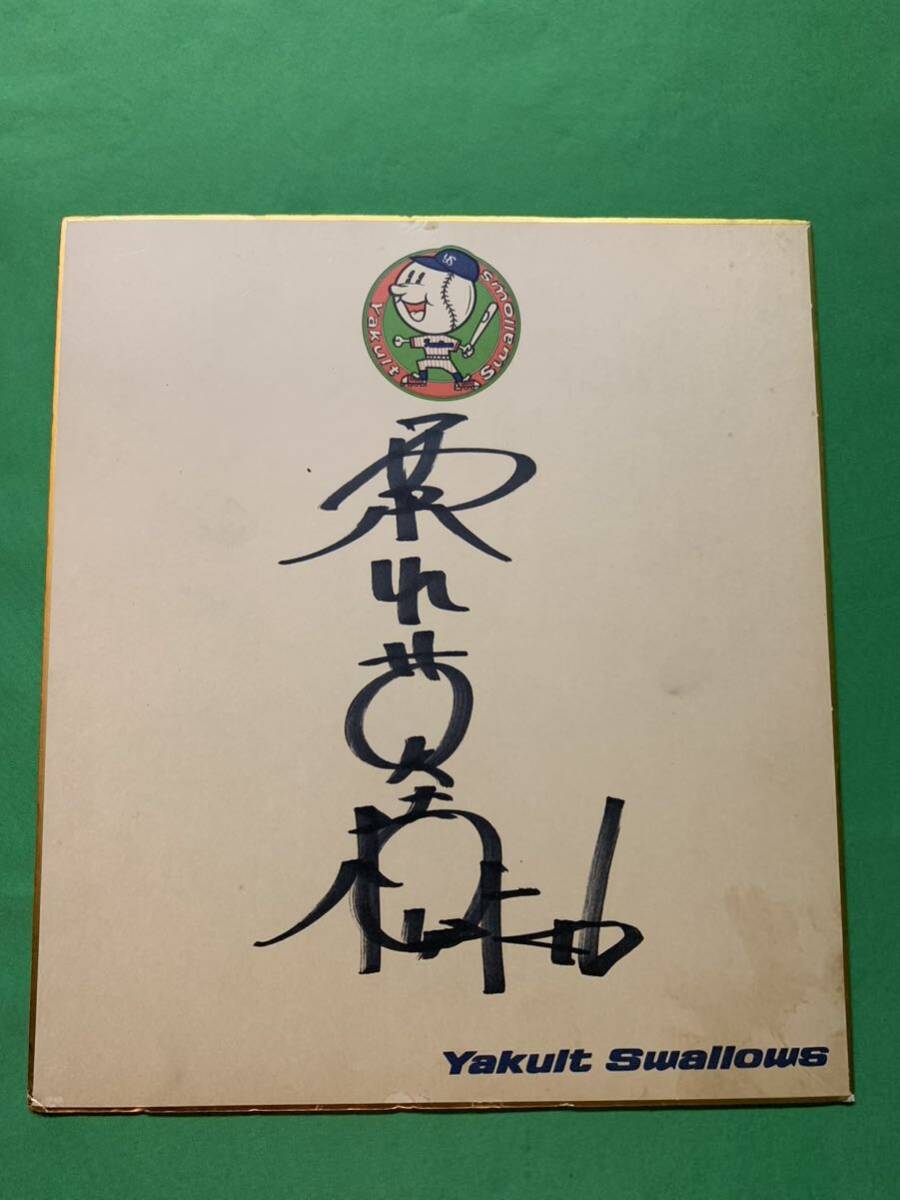 YS
Yakult Swallows
栗山英樹
Yakult Swallows